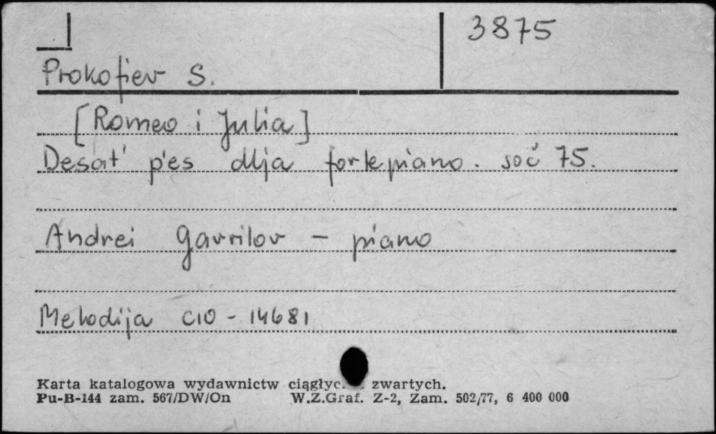 3875
Prokofiev S.
[Romeo i Julia]
Desat' p'es dlja fortepiano. soč 75.
Andrei Gavrilov - piano
Melodija C10 - 14681
Karta katalogowa wydawnictw zwartych.
Pu-B-144 zam. 567/DW/On W.Z.Graf. Z-2, Zam. 502/77, 6 400 000